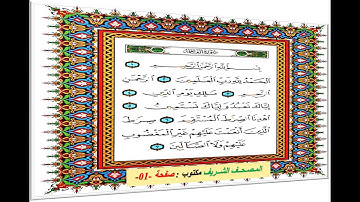 سورة الفاتحة
بسم الله الرحمن الرحيم
الحمد لله رب العلمين الرحمن
الرحيم ملك يوم الدين
إياك نعبد وإياك نستعين
اهدنا الصرط المستقيم صرط
الذين أنعمت عليهم غير المغضوب
عليهم ولا الضالين
المصحف الشريف مكتوب : صفحة -01-